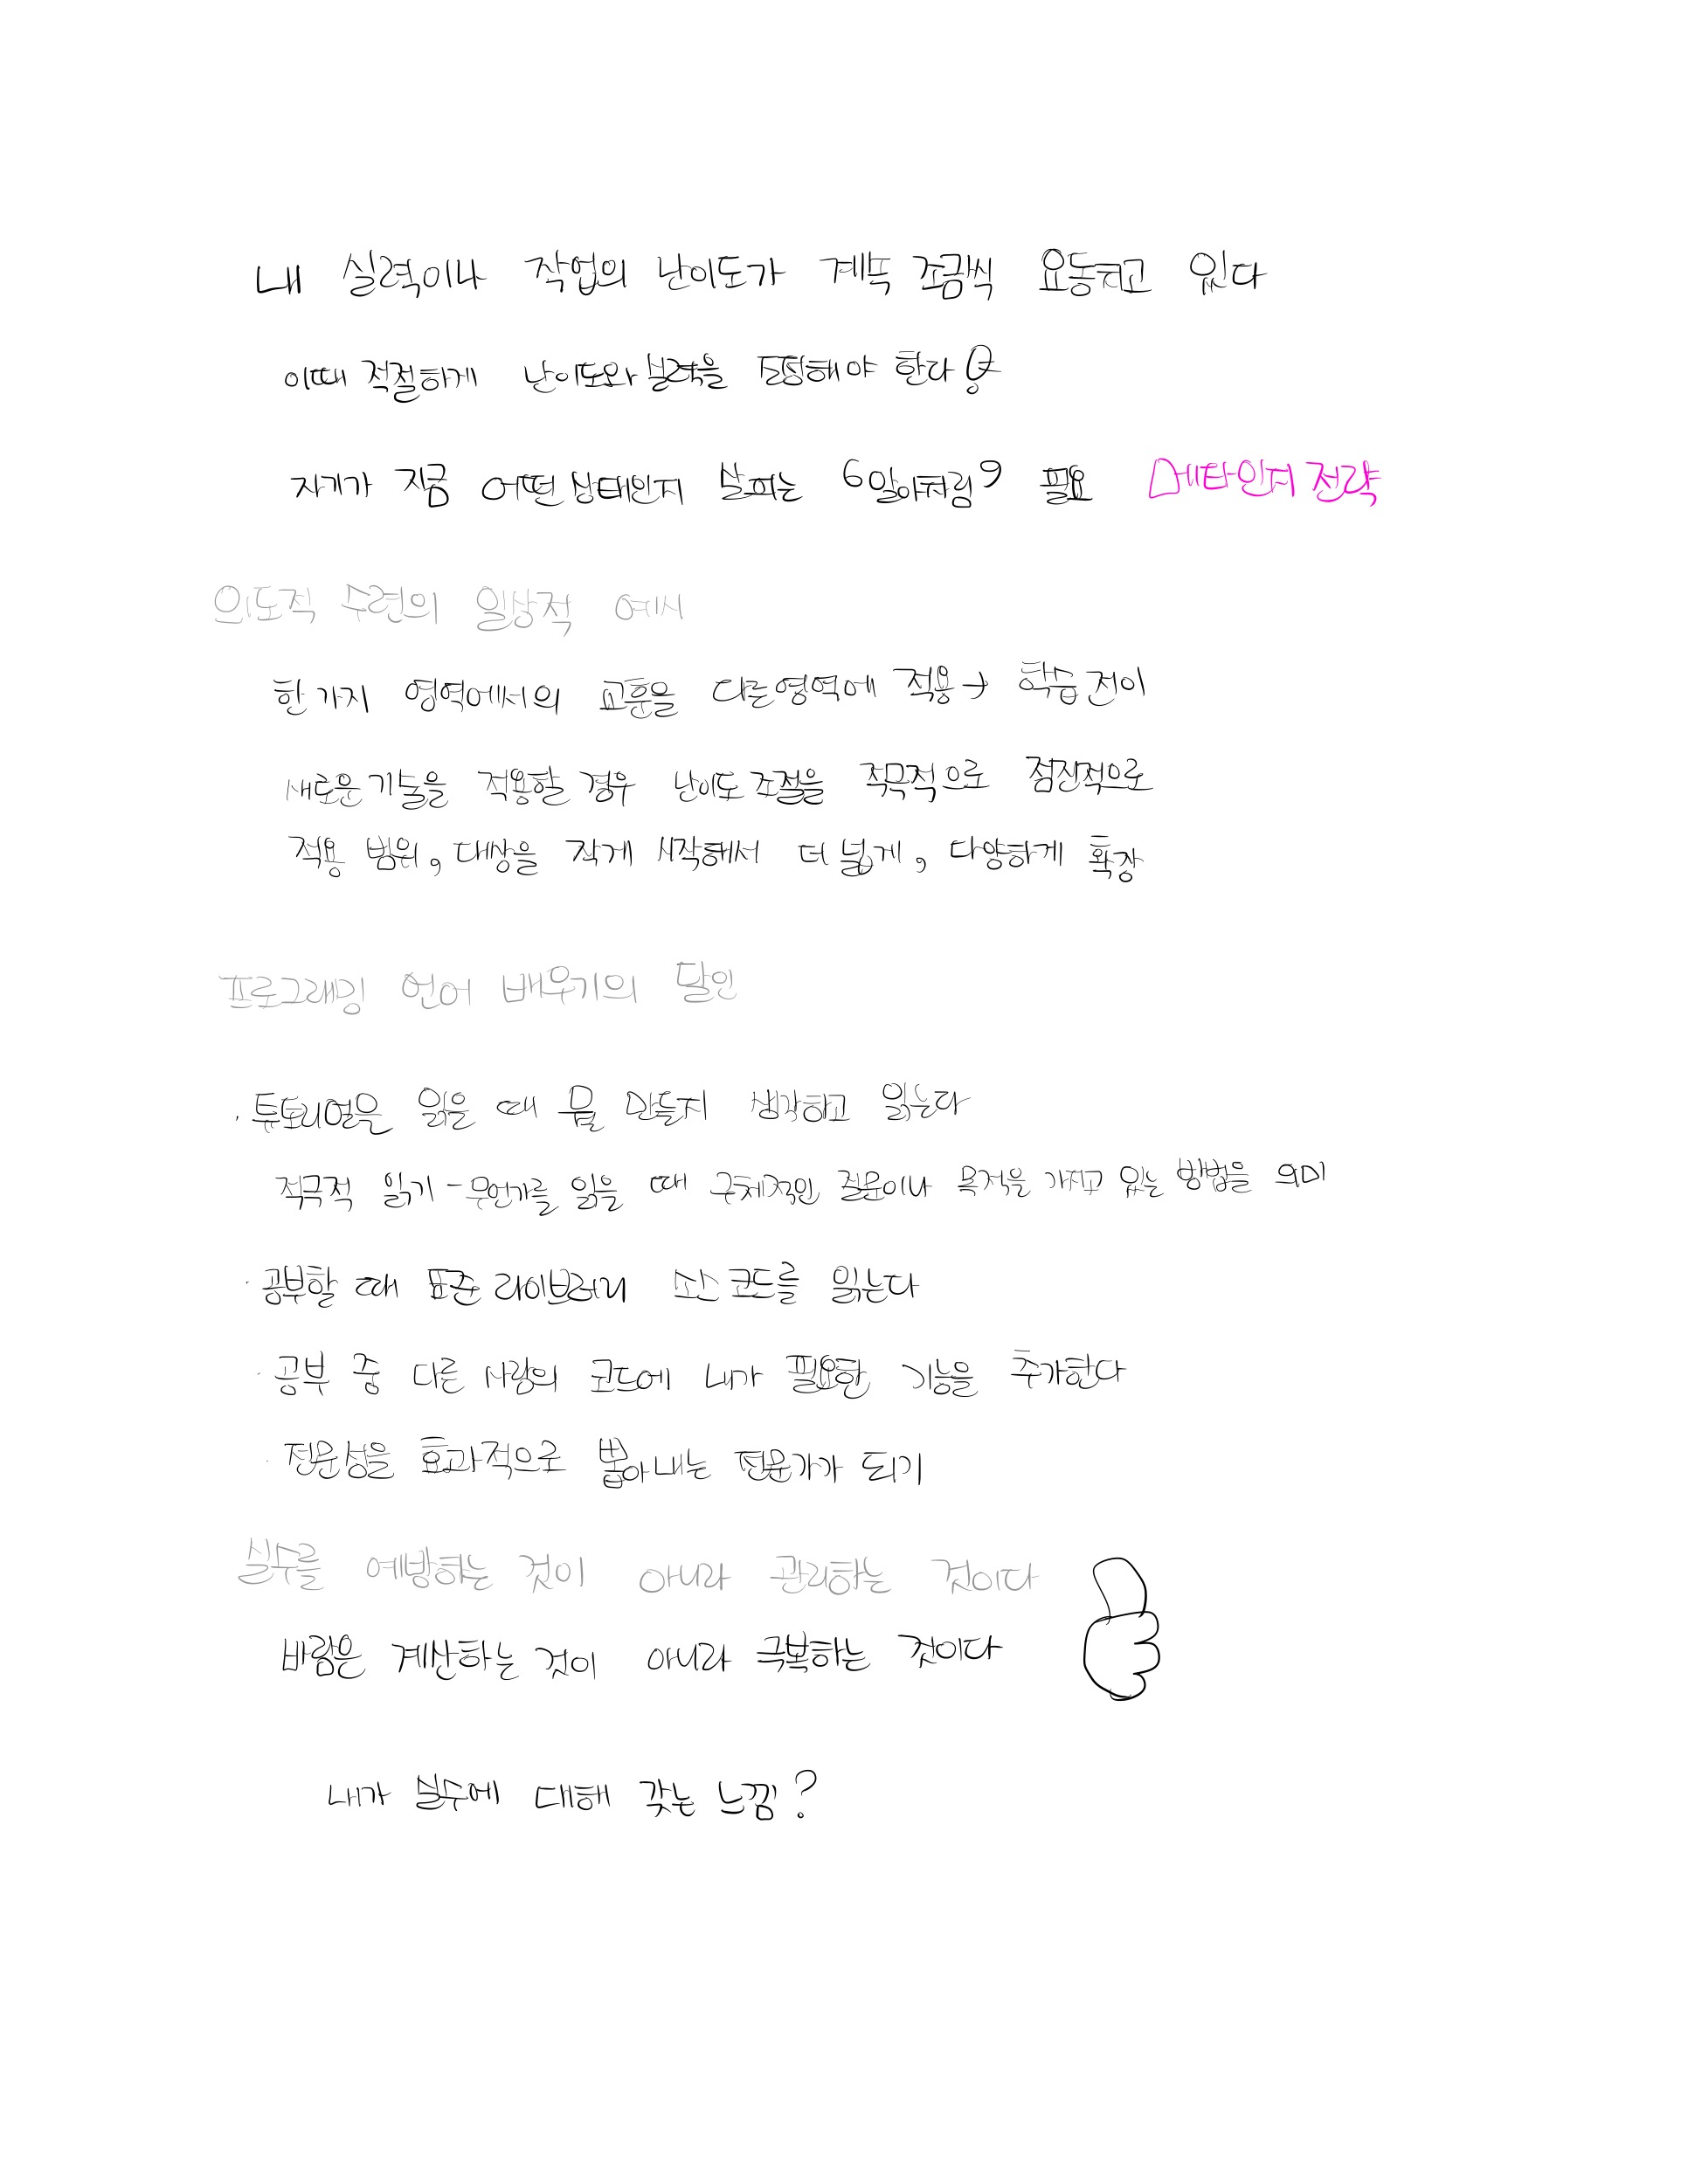 내 실력이나 작업의 난이도가 계속 조금씩 요동치고 있다
이때 적절하게 난이도와 실력을 조정해야 한다
자기가 지금 어떤 상태인지 살피는 '알아차림' 필요 메타인지 전략
의도적 수련의 일상적 예시
한가지 영역에서의 교훈을 다른영역에 적용 → 학습 전이
새로운 기술을 적용할 경우 난이도 조절을 적극적으로 점진적으로
적용 범위, 대상을 작게 시작해서 더 넓게, 다양하게 확장
프로그래밍 언어 배우기의 달인
· 튜토리얼을 읽을 때 뭘 만들지 생각하고 읽는다
적극적 읽기 - 무언가를 읽을 때 구체적인 질문이나 목적을 가지고 있는 방법을 의미
· 공부할 때 표준 라이브러리 소스 코드를 읽는다
· 공부 중 다른 사람의 코드에 내가 필요한 기능을 추가한다
· 전문성을 효과적으로 뽑아내는 전문가가 되기
실수를 예방하는 것이 아니라 관리하는 것이다
바람은 계산하는 것이 아니라 극복하는 것이다
내가 실수에 대해 갖는 느낌?